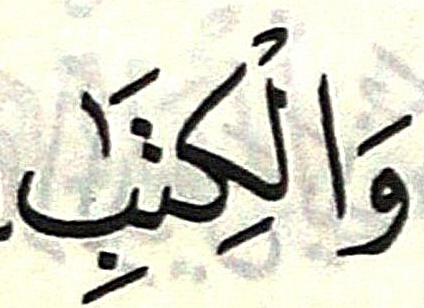 وَالْكِتَٰبِ